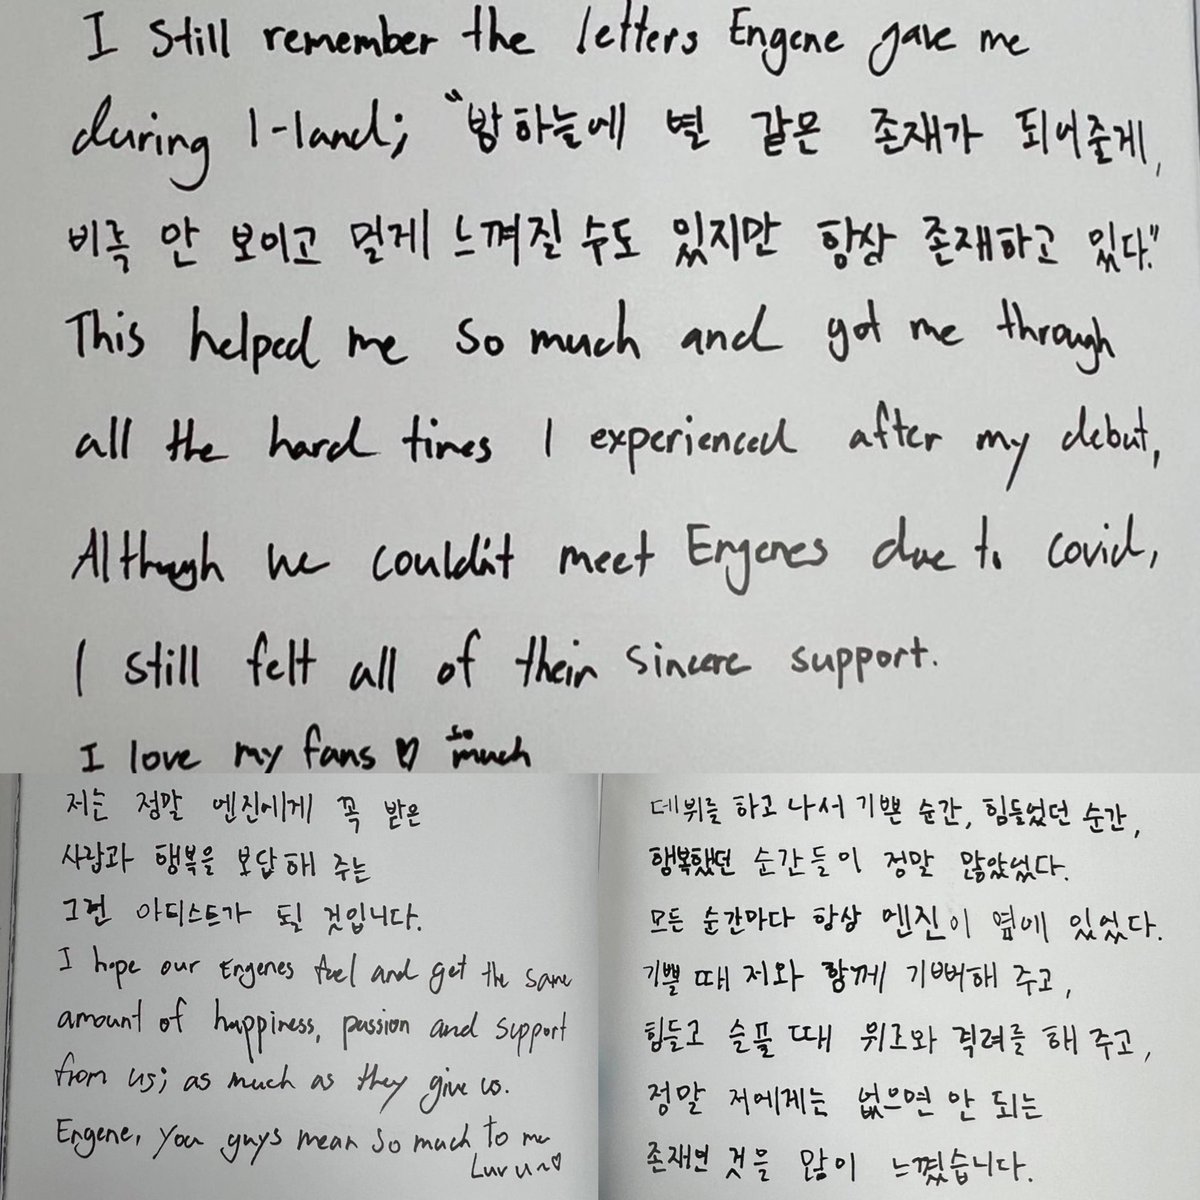 I still remember the letters Engene gave me
during I-land; "밤하늘에 별 같은 존재가 되어줄게,
비록 안 보이고 멀게 느껴질 수도 있지만 항상 존재하고 있다."
This helped me so much and got me through
all the hard times I experienced after my debut,
Although we couldn't meet Engenes due to covid,
I still felt all of their sincere support.
I love my fans ♡ so much
저는 정말 엔진에게 꼭 받은
사랑과 행복을 보답해 주는
그런 아티스트가 될 것입니다.
I hope our Engenes feel and get the same
amount of happiness, passion and support
from us; as much as they give us.
Engene, you guys mean so much to me
Luv u~♡
데뷔를 하고 나서 기쁜 순간, 힘들었던 순간,
행복했던 순간들이 정말 많았었다.
모든 순간마다 항상 엔진이 옆에 있었다.
기쁠 때 저와 함께 기뻐해 주고,
힘들고 슬플 때 위로와 격려를 해 주고,
정말 저에게는 없으면 안 되는
존재인 것을 많이 느꼈습니다.